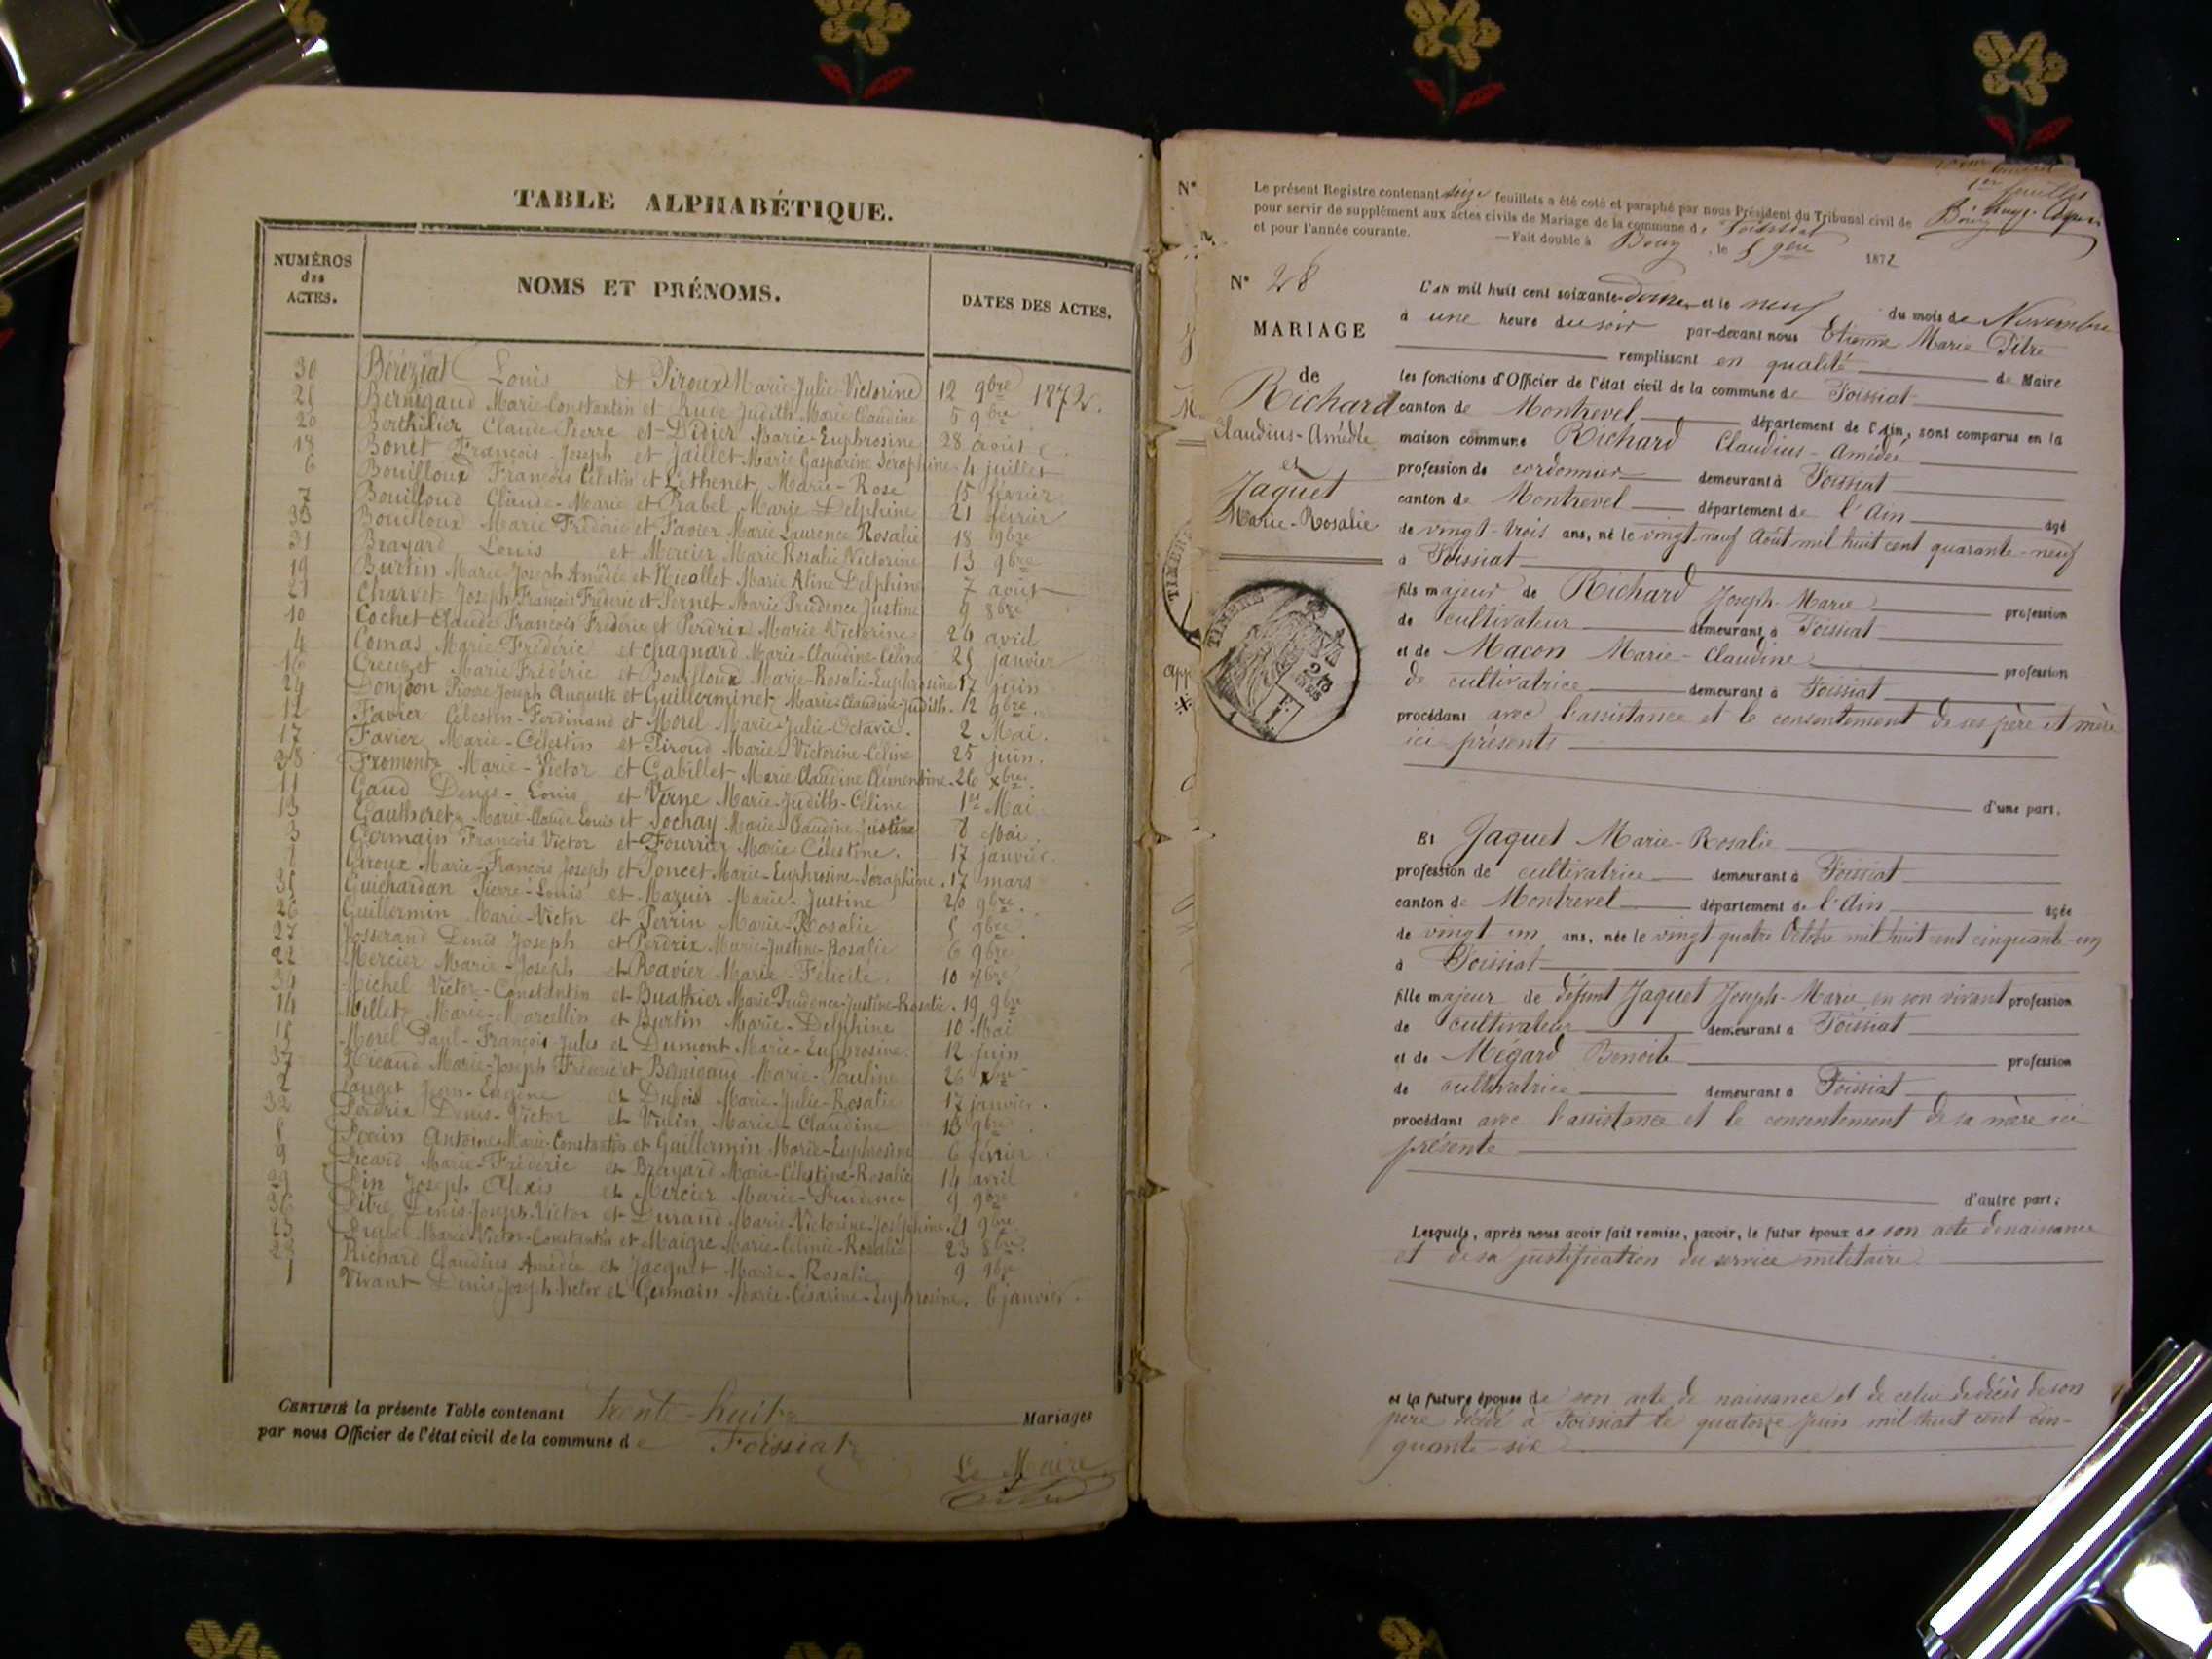 TABLE ALPHABÉTIQUE.
NUMÉROS
des
ACTES.
NOMS ET PRÉNOMS.
DATES DES ACTES.
30 Béréziat Louis et Piroux Marie-Julie-Victorine 12 9bre 1872.
Bernigaud Marie-Constantin et Judith Marie Claudine 5 9bre
20 Berthilier Claude-Pierre et Didier Marie-Euphrosine 28 août
18 Bonet François-Joseph et Jaillet Marie Gasparine Seraphine 4 juillet
6 Bouilloux François Célestin et Lethenet, Marie-Rose 15 février
7 Bouilloud Claude-Marie et Prabel Marie-Delphine 21 février
33 Bouilloux Marie Frédéric et Favier Marie Laurence Rosalie 18 9bre
31 Brayard Louis et Mercier Marie Rosalie Victorine 13 9bre
19 Burtin Marie Joseph Amédée et Nicollet Marie Aline Delphine 7 août
21 Charvet Joseph François Frédéric et Pernet Marie Prudence Justine 9 8bre
10 Cochet Claude François Frédéric et Perdrix Marie Victorine 24 avril
4 Comas Marie Frédéric et Chagnard Marie-Claudine-Céline 21 janvier
16 Creuzet Marie Frédéric et Bouilloux Marie-Rosalie-Euphrosine 17 juin
24 Donjon Pierre Joseph Auguste et Guillerminet Marie-Claudine-Judith. 12 9bre.
12 Favier Célestin-Ferdinand et Morel Marie-Julie-Octavie. 2 Mai.
17 Favier Marie-Célestin et Piroud Marie-Victorine-Céline 25 juin.
38 Fromont Marie-Victor et Gabillet Marie Claudine Clémentine 26 xbre.
11 Gaud Denis-Louis et Verne Marie-Judith-Céline 1er Mai
13 Gautheret Marie-Claude Louis et Sochay Marie-Claudine-Justine 8 Mai.
3 Germain François Victor et Fourrier Marie Célestine. 17 janvier
Giroux Marie-François Joseph et Poncet Marie-Euphrosine-Seraphine. 17 mars
35 Guichardan Pierre-Louis et Mazuir Marie-Justine 20 9bre.
26 Guillermin Marie-Victor et Perrin Marie-Rosalie 5 9bre.
27 Josserand Denis Joseph et Perdrix Marie-Justine-Rosalie 6 9bre
22 Mercier Marie-Joseph et Ravier Marie-Félicité. 10 8bre
34 Michel Victor-Constantin et Buathier Marie-Prudence-Justine-Rosalie. 19 9bre
14 Millet Marie-Marcellin et Burtin Marie-Delphine 10 Mai
15 Morel Paul-François Jules et Dumont Marie-Euphrosine. 12 juin
37 Nicaud Marie-Joseph Frédéric et Bernigaud Marie-Pauline 26 xbre
2 Pauget Jean-Eugène et Dubois Marie-Julie-Rosalie 17 janvier.
32 Perdrix Denis-Victor et Vulin Marie-Claudine 13 9bre
Antoine-Marie-Constantin et Guillermin Marie-Euphrosine 6 février
9 Picard Marie-Frédéric et Brayard Marie-Célestine-Rosalie 14 avril
29 Pin Joseph Alexis et Mercier Marie-Prudence 9 9bre
36 Pitre Denis-Joseph-Victor et Durand Marie-Victorine-Joséphine 21 9bre
Prabel Marie-Victor-Constantin et Maigre Marie-Célinie-Rosalie 23 8bre.
28 Richard Claudius Amédée et Jacquet Marie-Rosalie 9 9bre
1 Vivant Denis-Joseph-Victor et Germain Marie-Césarine-Euphrosine. 6 janvier.
CERTIFIÉ la présente Table contenant trente-huit Mariages
par nous Officier de l'état civil de la commune de Foissiat
Le Maire
Le présent Registre contenant seize feuillets a été coté et paraphé par nous Président du Tribunal civil de Bourg
pour servir de supplément aux actes civils de Mariage de la commune de Foissiat
et pour l'année courante. —Fait double à Bourg, le 5 9bre 1872
N° 28
MARIAGE
de
Richard
Claudius-Amédée
et
Jaquet
Marie-Rosalie
TIMBRE
L'AN mil huit cent soixante-douze et le neuf du mois de Novembre
à une heure du soir par-devant nous Etienne Marie Pitre
remplissant en qualité de Maire
les fonctions d'Officier de l'état civil de la commune de Foissiat
canton de Montrevel département de l'Ain, sont comparus en la
maison commune Richard Claudius-Amédée
profession de cordonnier demeurant à Foissiat
canton de Montrevel département de l'Ain âgé
de vingt-trois ans, né le vingt-neuf Août mil huit cent quarante-neuf
à Foissiat
fils majeur de Richard Joseph-Marie profession
de cultivateur demeurant à Foissiat
et de Macon Marie-Claudine profession
de cultivatrice demeurant à Foissiat
procédant avec l'assistance et le consentement de ses père et mère
ici présents
d'une part.
Et Jaquet Marie-Rosalie
profession de cultivatrice demeurant à Foissiat
canton de Montrevel département de l'Ain âgée
de vingt un ans, née le vingt quatre Octobre mil huit cent cinquante-un
à Foissiat
fille majeur de défunt Jaquet Joseph-Marie en son vivant profession
de cultivateur demeurant à Foissiat
et de Mégard Benoite profession
de cultivatrice demeurant à Foissiat
procédant avec l'assistance et le consentement de sa mère ici
présente
d'autre part;
Lesquels, après nous avoir fait remise, savoir, le futur époux de son acte de naissance
et de sa justification du service militaire
et la future épouse de son acte de naissance et de celui de décès de son
père décédé à Foissiat le quatorze juin mil huit cent cin-
quante-six